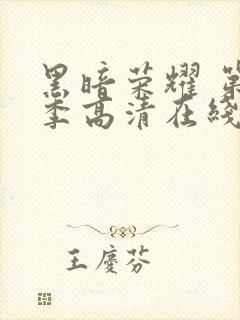 黑暗荣耀 第
季高清在线
王庆芬